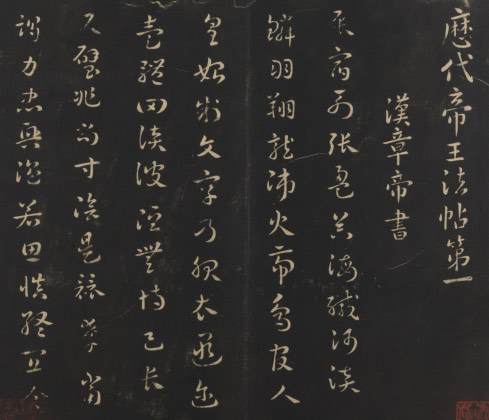 歷代帝王法帖第一
漢章帝書
辰宿列張盈昃海鹹河淡
鱗羽翔龍師火帝鳥官人
皇始制文字乃服衣遐邇
壹體罔談彼短靡恃己長
尺璧非寶寸陰是競孝當
竭力忠興溫若思慎終宜令